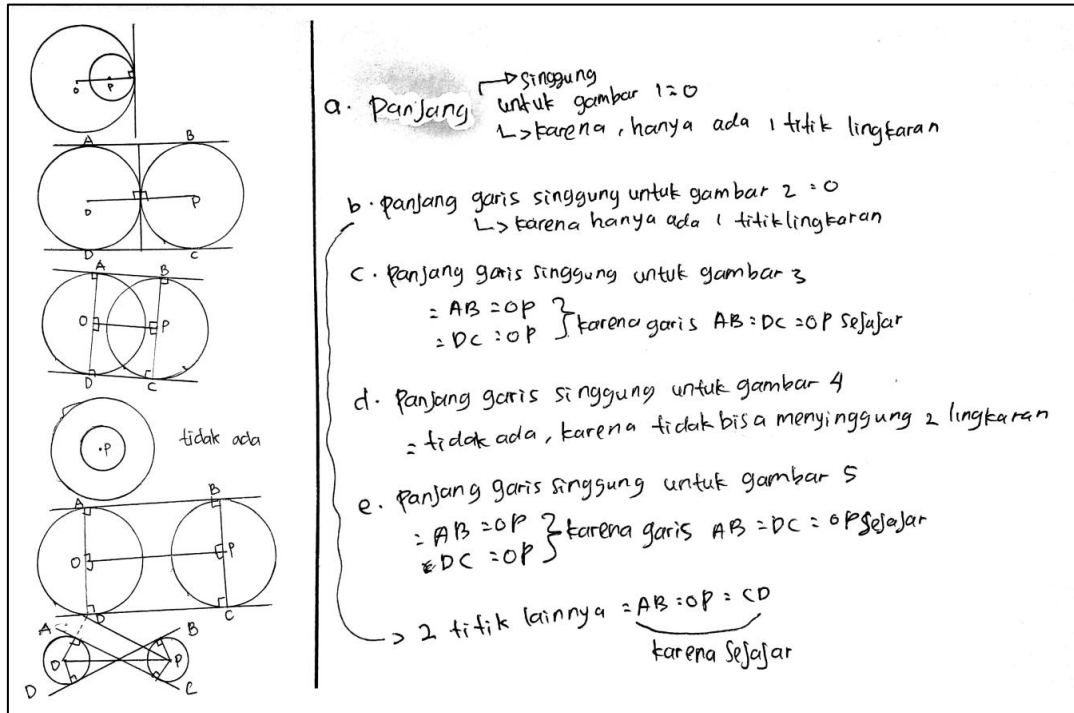 O P
A B
O P
D C
A B
O P
D C
P tidak ada
A B
O P
D C
A B
O P
D C
a. Panjang singgung
untuk gambar 1 = 0
↳ karena, hanya ada 1 titik lingkaran
b. panjang garis singgung untuk gambar 2 = 0
↳ karena hanya ada 1 titik lingkaran
c. panjang garis singgung untuk gambar 3
= AB = OP
= DC = OP } karena garis AB = DC = OP sejajar
d. Panjang garis singgung untuk gambar 4
= tidak ada, karena tidak bisa menyinggung 2 lingkaran
e. Panjang garis singgung untuk gambar 5
= AB = OP
= DC = OP } karena garis AB = DC = OP sejajar
→ 2 titik lainnya = AB = OP = CD
karena sejajar